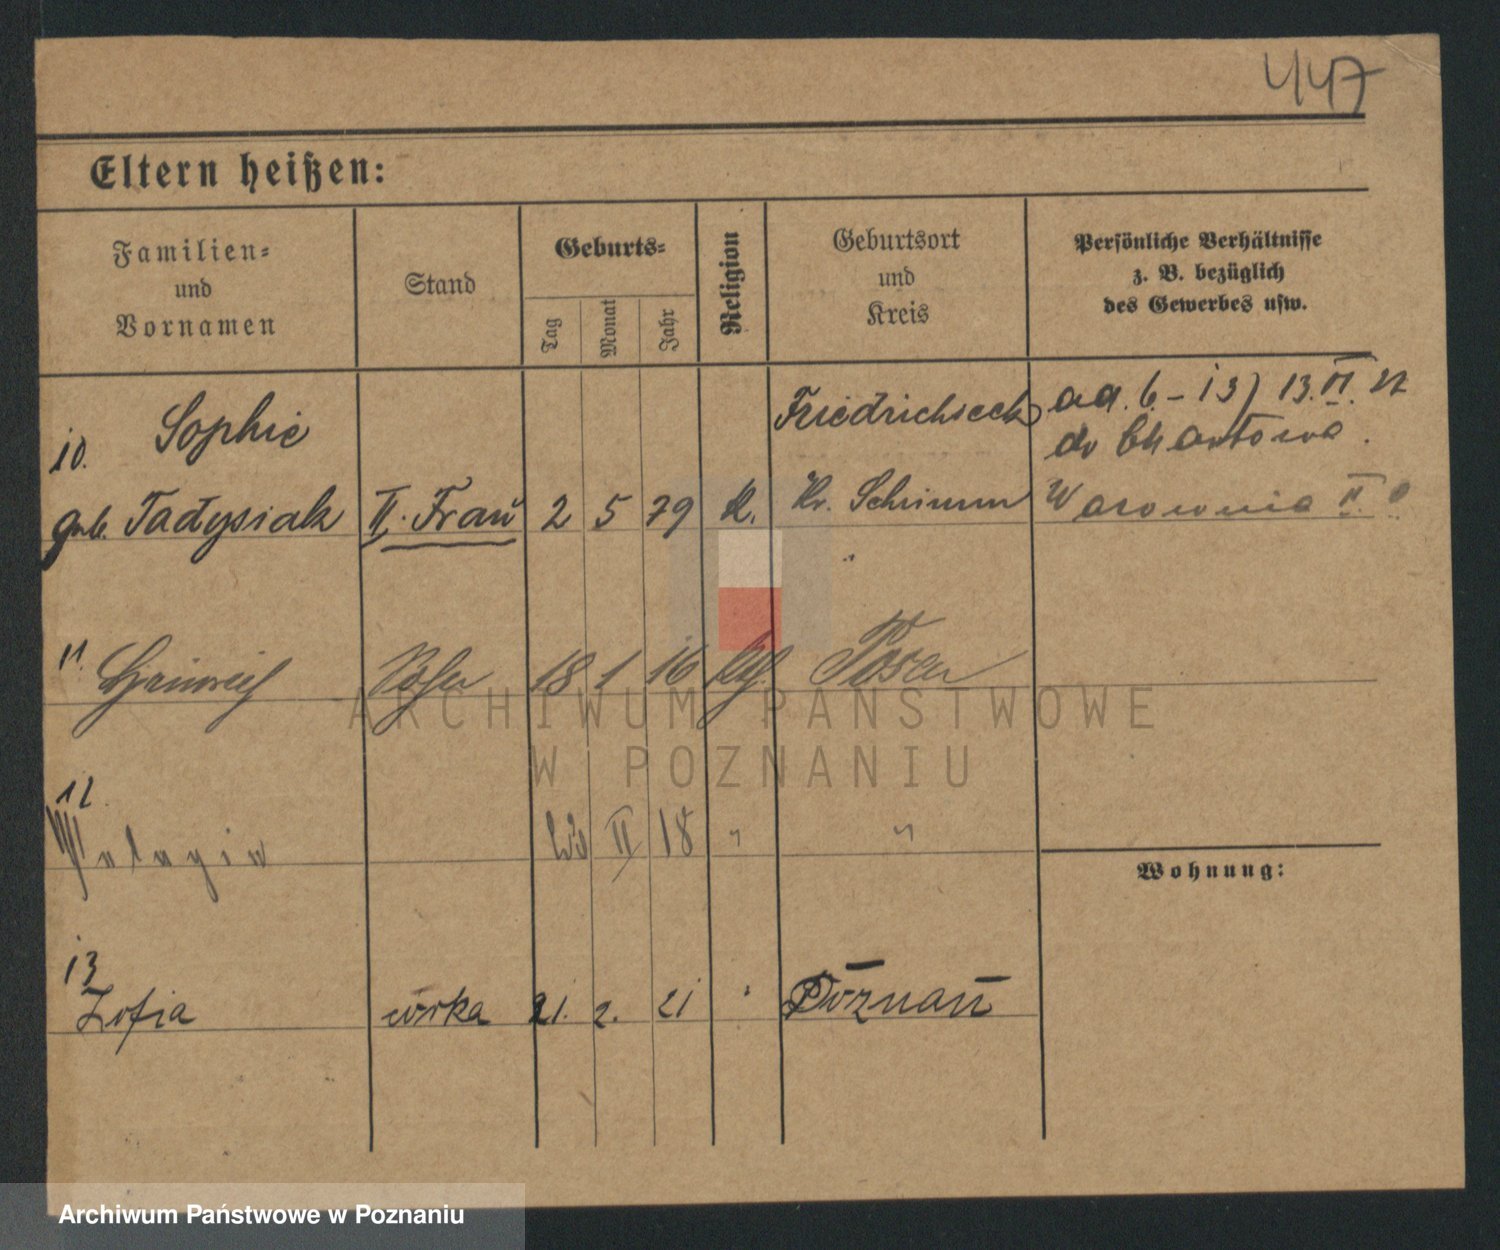 447
Eltern heißen:
Familien-
und
Vornamen
Stand
Geburts-
Tag
Monat
Jahr
Religion
Geburtsort
und
Kreis
Persönliche Verhältnisse
z. B. bezüglich
des Gewerbes usw.
10. Sophie
geb. Tadysiak II. Frau 2 5 79 K. Friedrichseck
Kr. Schrimm
ad. 6-13) 13.VI.27
do Chartowa.
Warownia II.
11. Heinrich Sohn 18 1 16 kth. Posen
12.
Pelagia II 18 " "
13
Zofia córka 21. 2. 21 " Poznań
Wohnung:
ARCHIWUM PAŃSTWOWE
W POZNANIU
Archiwum Państwowe w Poznaniu